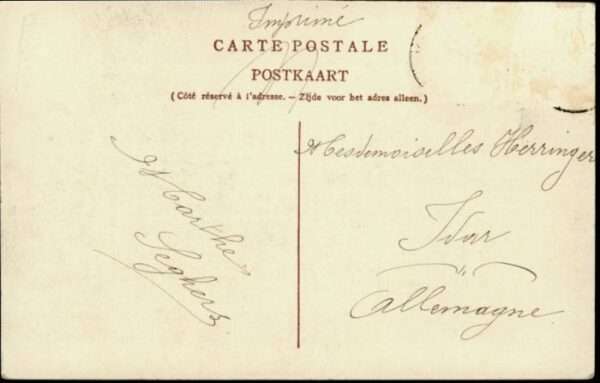 Imprimé
CARTE POSTALE
POSTKAART
(Côté réservé à l'adresse. — Zijde voor het adres alleen.)
Marthe
Seghers
Mesdemoiselles Herringer
Idar
Allemagne